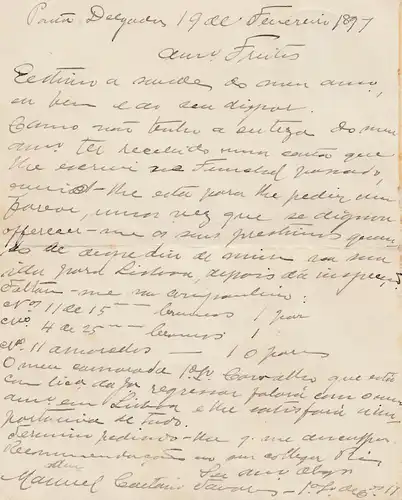 Ponta Delgada 19 de Fevereiro 1897
Amº Freitas
Estimo a saude do meu amº,
eu bem e ao seu dispor.
Como não tenho a certeza do meu
amº ter recebido uma carta que
lhe escrevi no Funchal passado,
envio-lhe esta para lhe pedir um
favor, uma vez que se dignou
offerecer-me os seus prestimos quan
do se despediu de mim na sua
ida para Lisboa, depois da inspecção
Faltam-me na
Nºs 11 de 15 brancos 1 par
Nº 4 de 25 brancos 1 "
Nº 11 amarados 10 pares
O meu camarada 1º Carvalho que está
com licª da por regressar falará com o meu
amº em Lisboa e lhe satisfará a im
portancia de tudo.
Termino pedindo-lhe q. me desculpe.
Recommendações ao
Seu amº obgº
Manuel Caetano Tavares